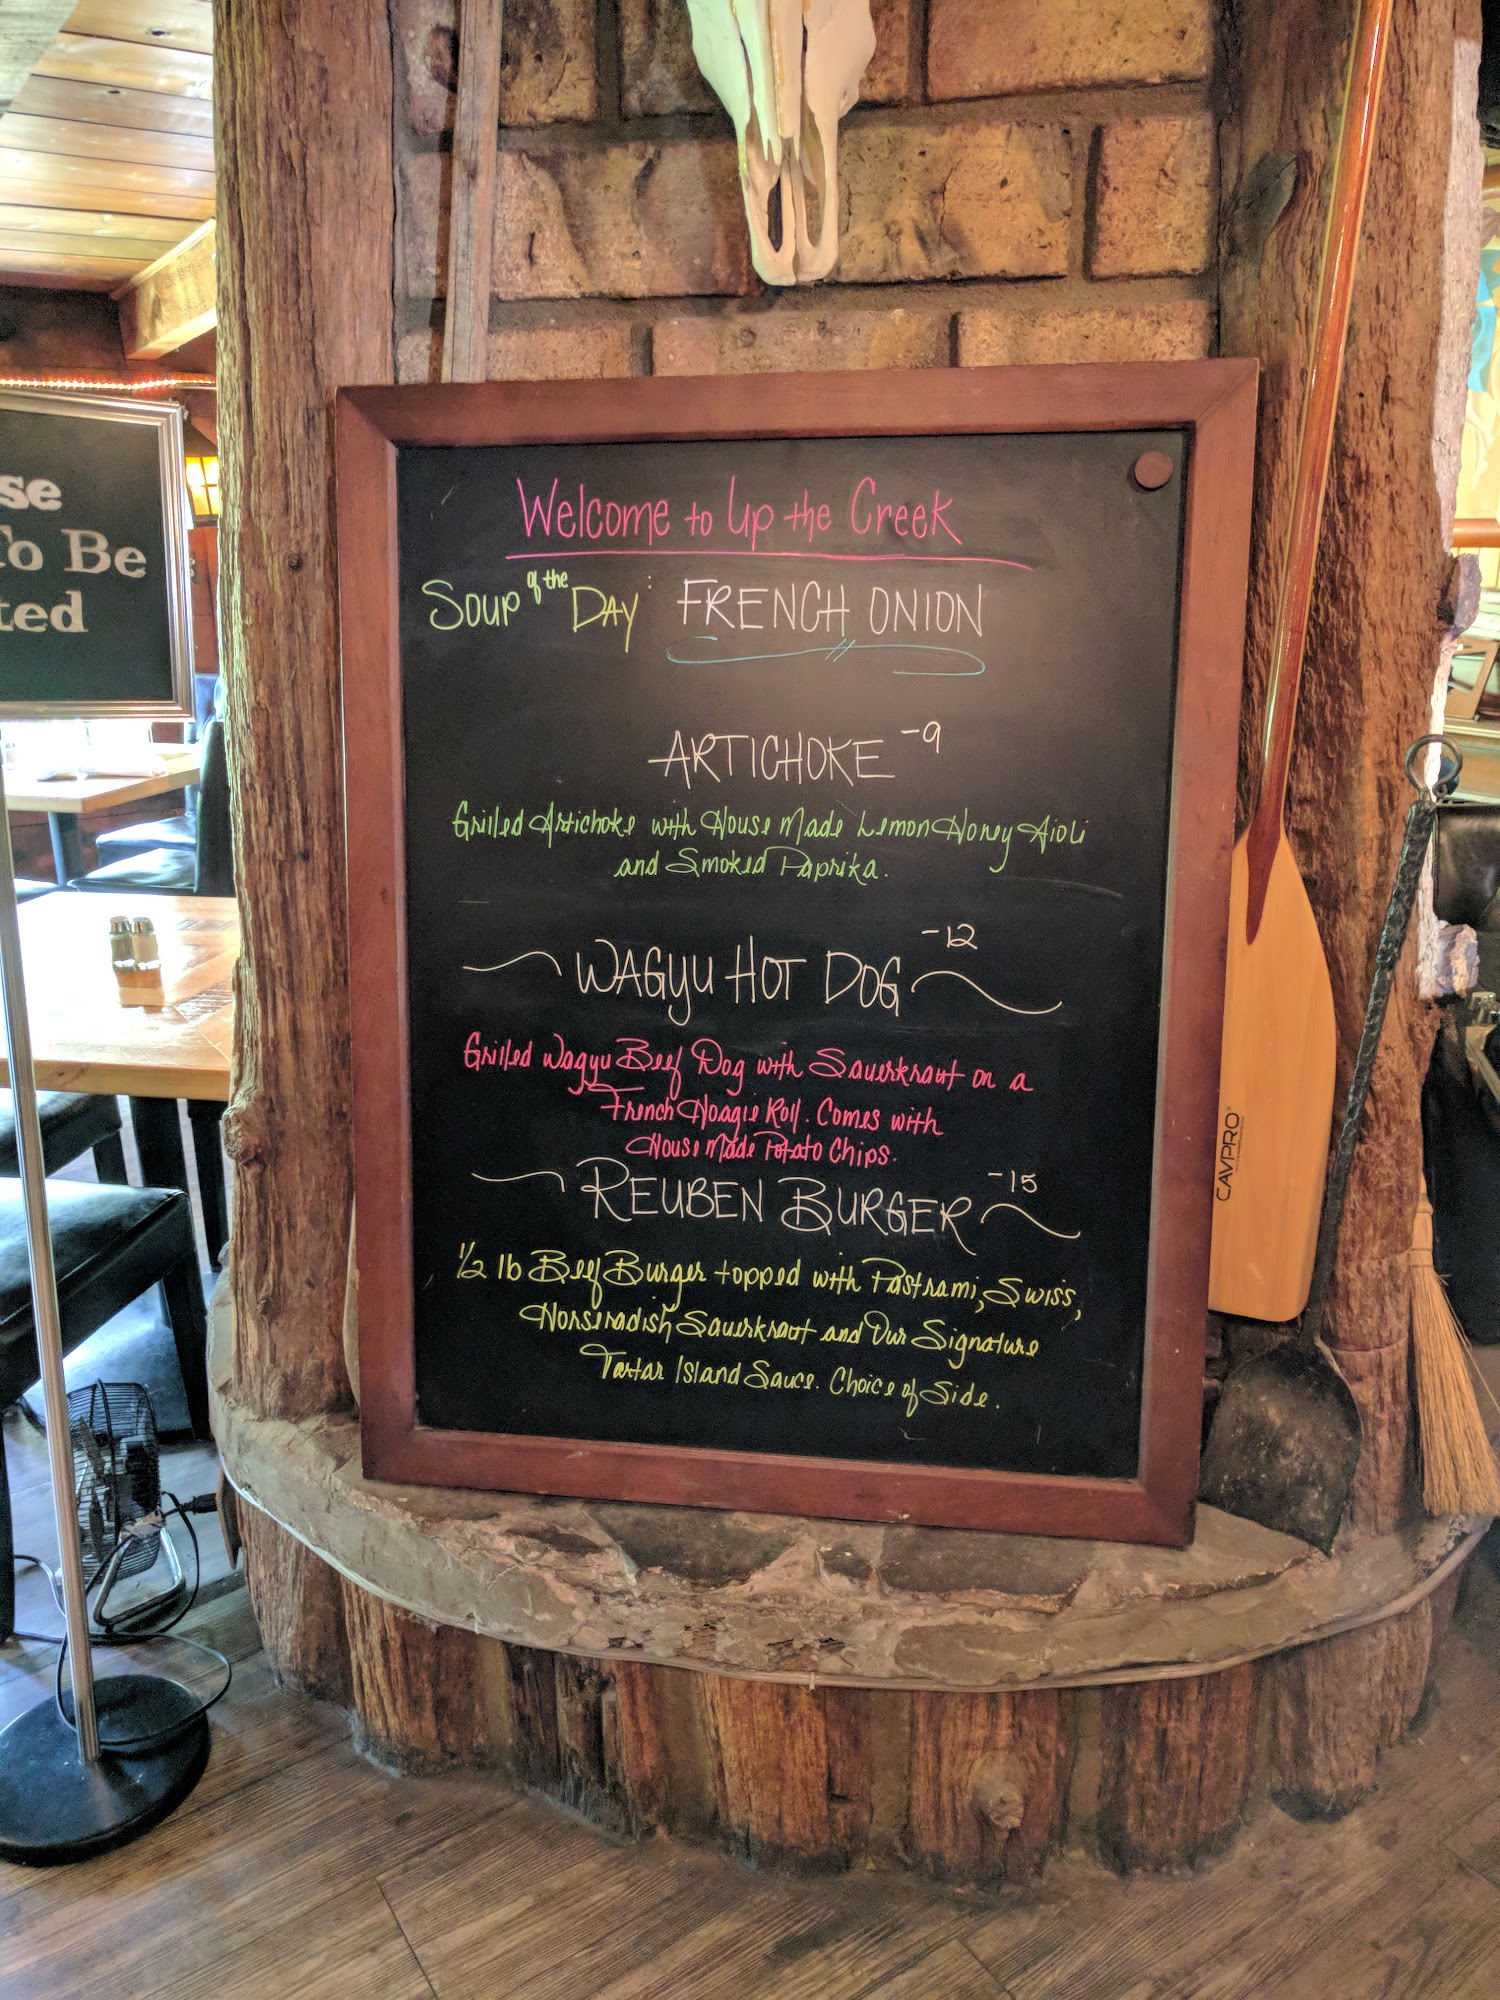 se
To Be
ted
Welcome to Up the Creek
Soup of the Day: FRENCH ONION
ARTICHOKE -9
Grilled Artichoke with House Made Lemon Honey Aioli
and Smoked Paprika.
WAGYU HOT DOG -12
Grilled Wagyu Beef Dog with Sauerkraut on a
French Hoagie Roll. Comes with
House Made Potato Chips.
REUBEN BURGER -15
1/2 lb Beef Burger topped with Pastrami, Swiss,
Horseradish Sauerkraut and Our Signature
Tartar Island Sauce. Choice of Side.
CAVPRO